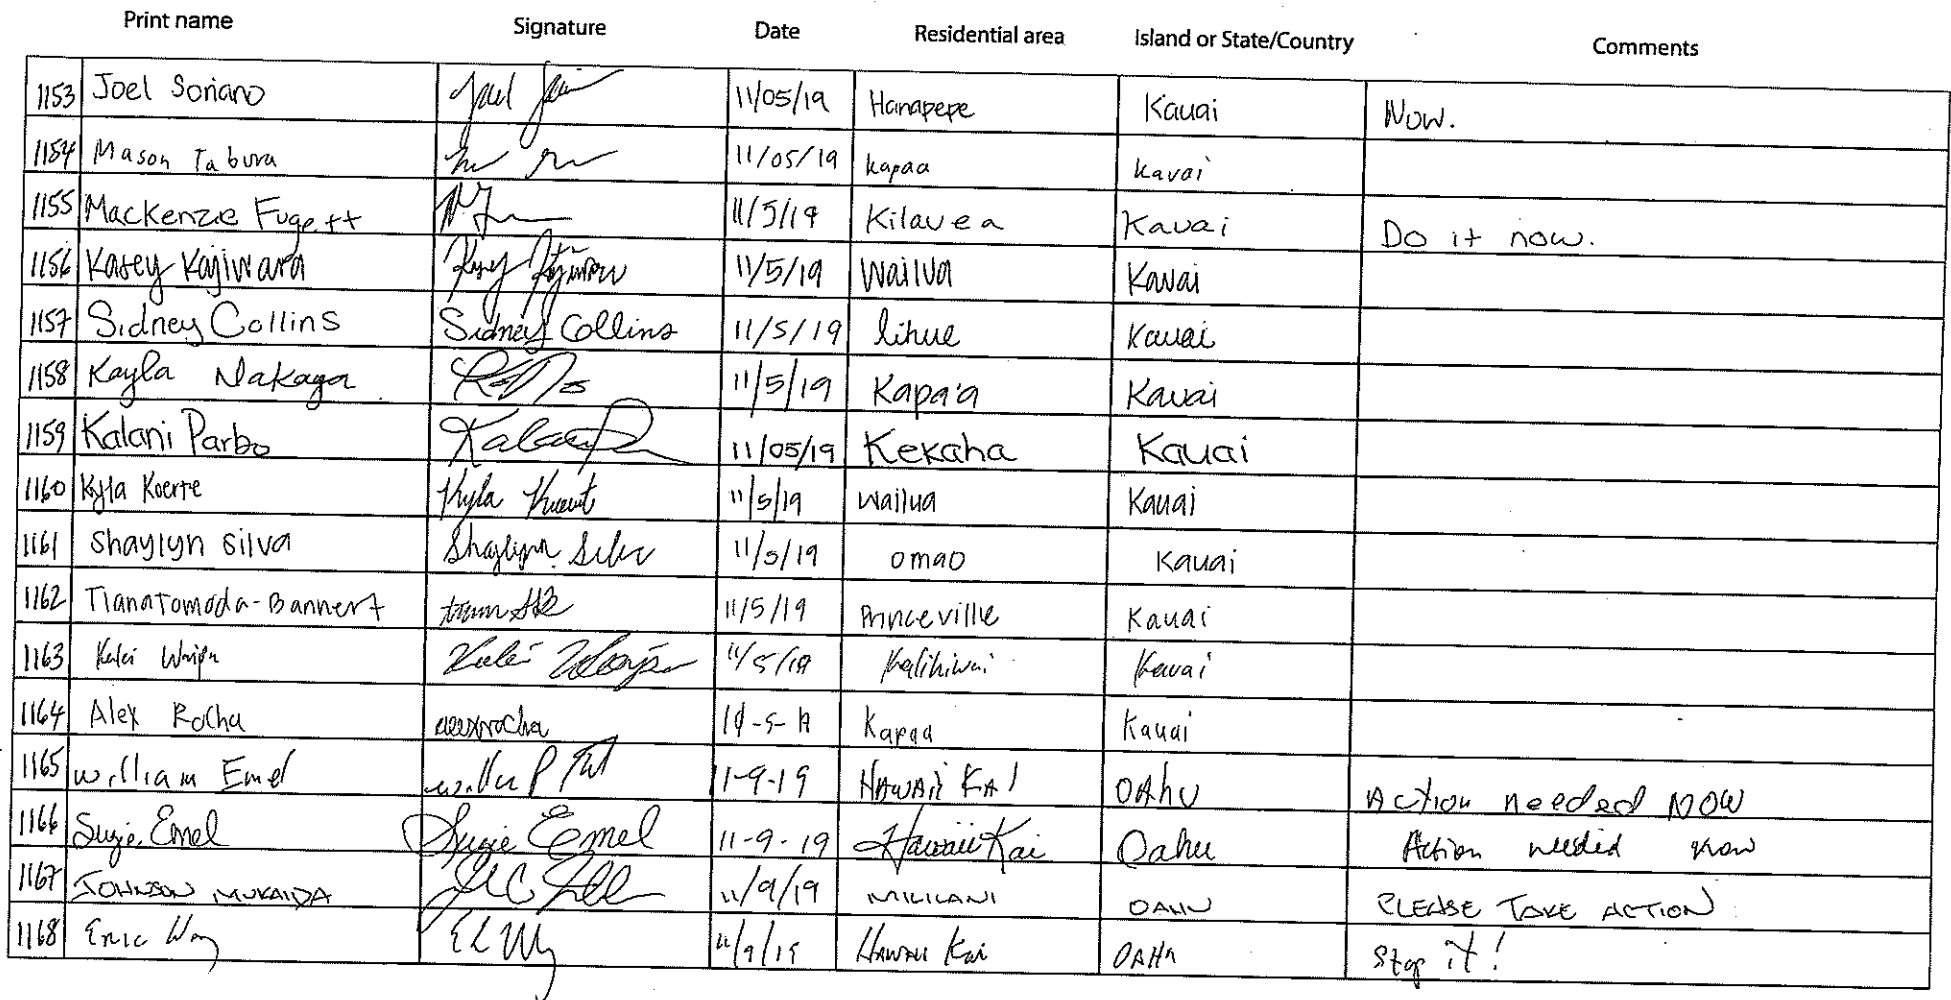 Print name Signature Date Residential area Island or State/Country Comments
1153 Joel Soriano 11/05/19 Hanapepe Kauai Now.
1154 Mason Tabura 11/05/19 Kapaa Kauai
1155 Mackenzie Fugett 11/5/19 Kilauea Kauai Do it now.
1156 Kasey Kajiwara 11/5/19 Wailua Kauai
1157 Sidney Collins Sidney Collins 11/5/19 lihue Kauai
1158 Kayla Nakaya 11/5/19 Kapa'a Kauai
1159 Kalani Parbo 11/05/19 Kekaha Kauai
1160 Kyla Koerte Kyla 11/5/19 Wailua Kauai
1161 Shaylyn Silva Shaylynn Silva 11/5/19 omao Kauai
1162 Tiana Tomoda-Bannert 11/5/19 Princeville Kauai
1163 11/5/19 Kalihiwai Kauai
1164 Alex Rocha alexrocha 11-5-19 Kapaa Kauai
1165 William Emel 11-9-19 HAWAII KAI OAhu Action needed NOW
1166 Suzie Emel Suzie Emel 11-9-19 Hawaii Kai Oahu Action needed now
1167 JOHNSON MUKAIDA 11/9/19 MILILANI OAHU PLEASE TAKE ACTION
1168 Eric 11/9/19 HAWAII Kai OAHU Stop it!